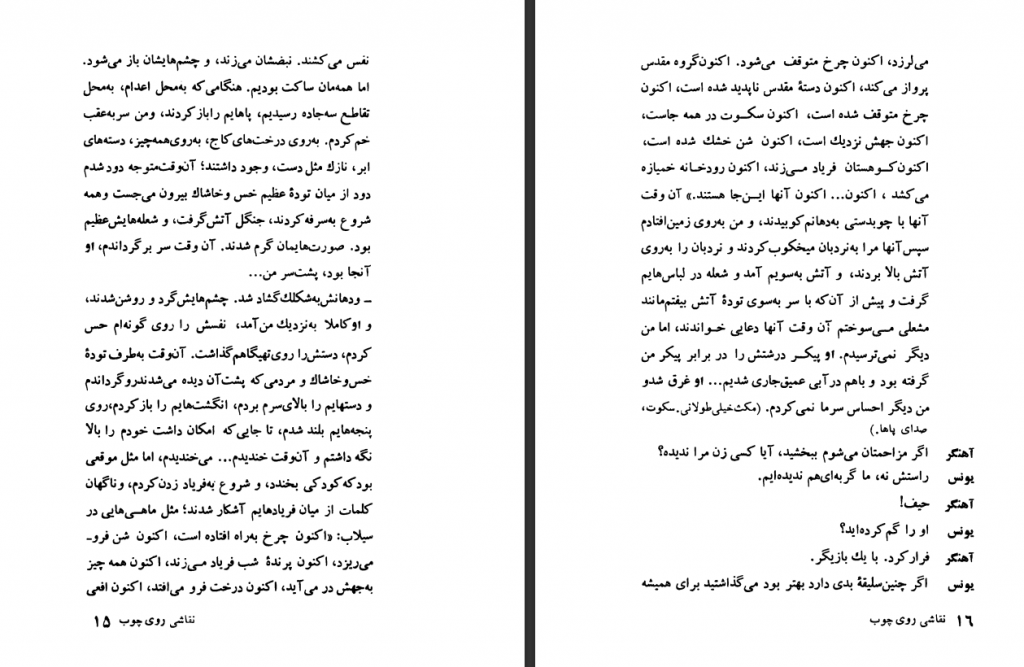 نفس می‌کشند. نبضشان می‌زند، و چشم‌هایشان باز می‌شود.
اما همه‌مان ساکت بودیم. هنگامی‌که به‌محل اعدام، به‌محل
تقاطع سه‌جاده رسیدیم، پاهایم را باز کردند، ومن سر به‌عقب
خم‌کردم. به‌روی درخت‌های کاج، به‌روی همه‌چیز، دسته‌های
ابر، نازك مثل دست، وجود داشتند؛ آن‌وقت متوجه دود شدم
دود از میان تودهٔ عظیم خس وخاشاك بیرون می‌جست وهمه
شروع به‌سرفه‌کردند، جنگل آتش‌گرفت، و شعله‌هایش‌عظیم
بود. صورت‌هایمان گرم شدند. آن وقت سر برگرداندم، او
آنجا بود، پشت‌سر من...
ـ ودهانش‌به‌شکلك‌گشاد شد. چشم‌هایش‌گرد و روشن‌شدند،
و اوکاملا به‌نزدیك من‌آمد، نفسش را روی گونه‌ام حس
کردم، دستش‌را روی‌تهیگاهم‌گذاشت. آن‌وقت به‌طرف تودهٔ
خس‌وخاشاك و مردمی‌که پشت‌آن دیده می‌شدندروگرداندم
و دستهایم را بالای‌سرم بردم، انگشت‌هایم را بازکردم،روی
پنجه‌هایم بلند شدم، تا جایی‌که امکان داشت خودم را بالا
نگه داشتم و آن‌وقت خندیدم... می‌خندیدم، اما مثل موقعی
بودکه‌کودکی بخندد، و شروع به‌فریاد زدن‌کردم، وناگهان
کلمات از میان فریادهایم آشکار شدند؛ مثل ماهـی‌هایی در
سیلاب: «اکنون چرخ به‌راه افتاده است، اکنون شن فرو-
می‌ریزد، اکنون پرندهٔ شب فریاد مـی‌زند، اکنون همه چیز
به‌جهش در می‌آید، اکنون درخت فرو می‌افتد، اکنون افعی
نقاشی روی چوب ۱۵
می‌لرزد، اکنون چرخ متوقف می‌شود. اکنون‌گروه مقدس
پرواز می‌کند، اکنون دستهٔ مقدس ناپدید شده است، اکنون
چرخ متوقف شده است، اکنون سکـوت در همه جاست،
اکنون جهش نزدیك است، اکنون شن خشك شده است،
اکنون‌کـوهستان فریاد مـی‌زند، اکنون رودخانه خمیازه
می‌کشد ، اکنون... اکنون آنها ایـن‌جا هستند.» آن وقت
آنها با چوبدستی به‌دهانم‌کوبیدند، و من به‌روی زمین‌افتادم
سپس‌آنها مرا به‌نردبان میخکوب‌کردند و نردبان را به‌روی
آتش بالا بردند، و آتش به‌سویم آمد و شعله در لباس‌هایم
گرفت و پیش از آن‌که با سر به‌سوی تودهٔ آتش بیفتم‌مانند
مشعلی مـی‌سوختم آن وقت آنها دعایی خـواندند، اما من
دیگر نمی‌ترسیدم. او پیکـر درشتش را در برابر پیکر من
گرفته بود و باهم درآبی عمیق‌جاری شدیم... او غرق شدو
من دیگر احساس سرما نمی‌کردم. (مکث‌خیلی‌طولانی.سکوت،
صدای پاها.)
آهنگر اگر مزاحمتان می‌شوم ببخشید، آیا کسی زن مرا ندیده؟
یونس راستش نه، ما گربه‌ای‌هم ندیده‌ایم.
آهنگر حیف!
یونس او را گم‌کرده‌اید؟
آهنگر فرارکرد. با یك بازیگر.
یونس اگر چنین‌سلیقهٔ بدی دارد بهتر بود می‌گذاشتید برای همیشه
۱۶ نقاشی روی چوب